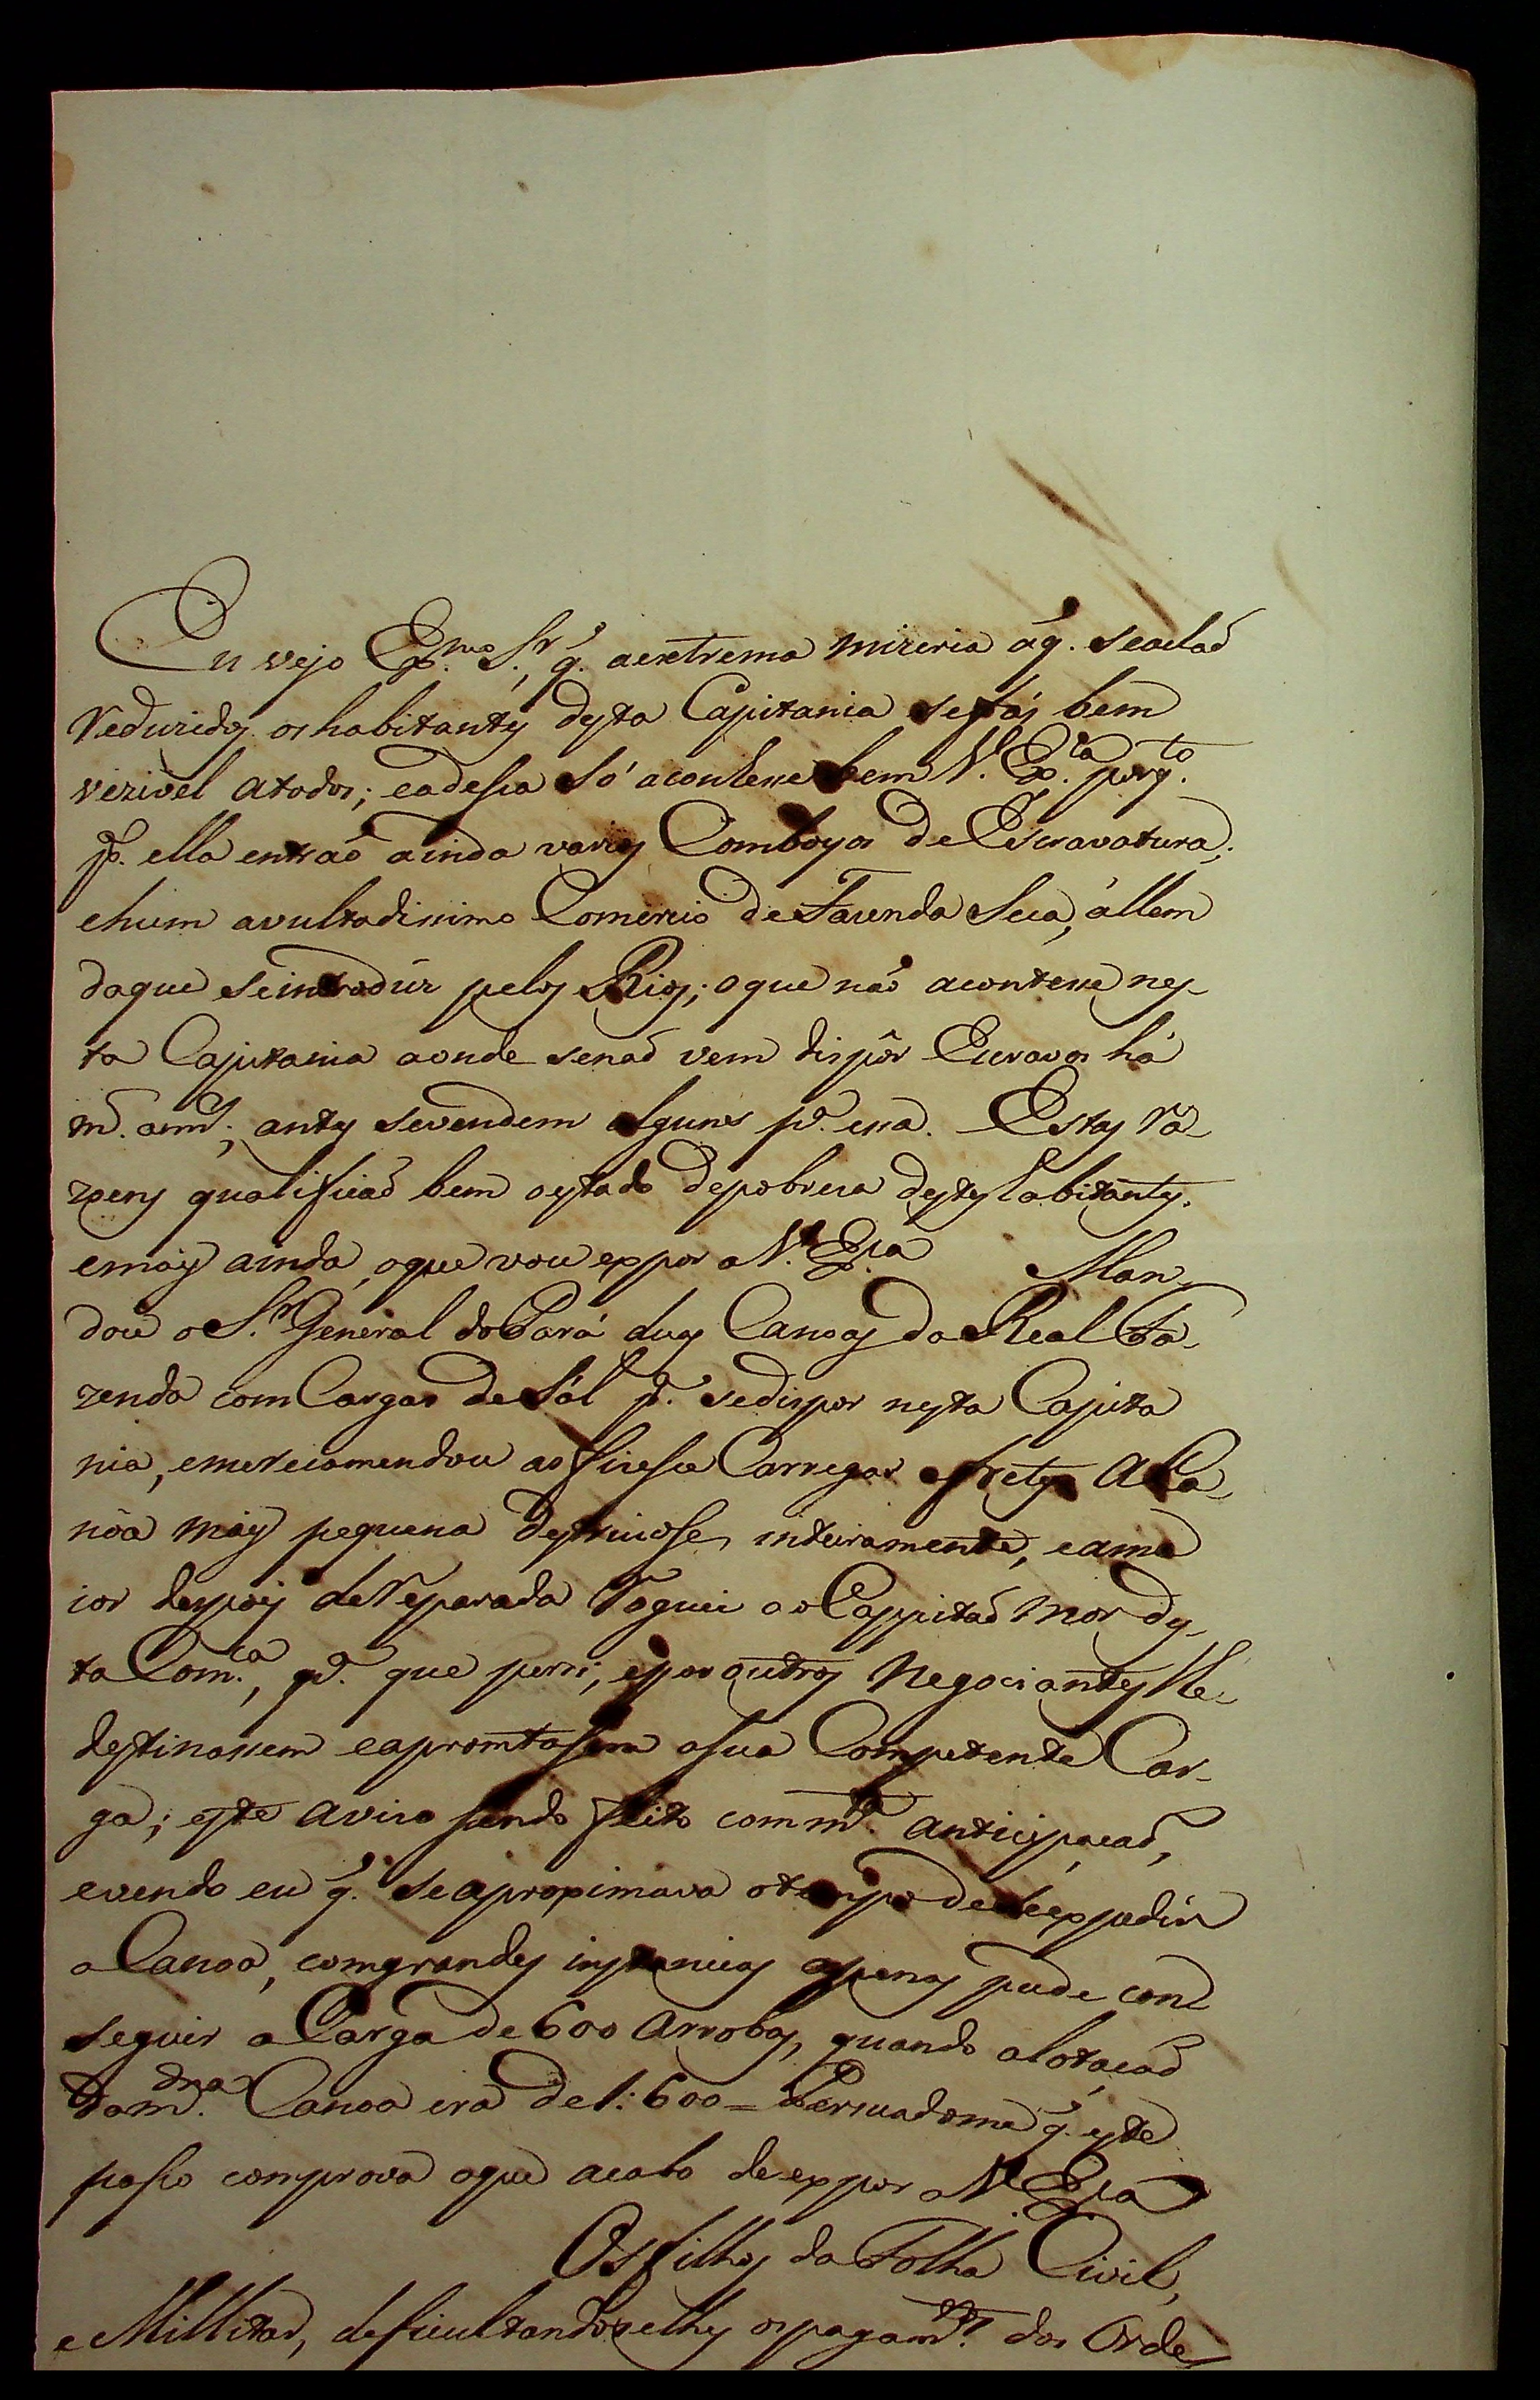 Eu vejo Ex.mo S.r, q. aextrema mizeria áq. seaclaõ
reduzidos os habitantes desta Capitania sefás bem
vezivel atodos; eadessa só acontesse bem V. Ex.cia porq.to
p. ella entraõ ainda varios Comboyos de Escravatura,
ehum avultadissimo Comercio de Fazenda Seca, állem
daque seintroduz pelos Rios; oque naõ acontesse nes-
ta Capitania aonde senaõ vem dispôr Escravos há
m. ann.s; antes sevendem alguns p.a essa. Estas ra-
zoens qualificaõ bem oestado depobreza destes habitantes,
emais ainda, oque vou expor a V. Ex.cia Man-
dou o S.r General do Pará duas Canoas da Real Fa-
zenda com Cargas de Sál p.a sedispor nesta Capita
nia, emerecomendou as fizesse Carregar afretes A Ca-
nôa mais pequena destruiose inteiramente, eama
ior despois dereparada roguei ao Cappitaõ mor des-
ta Com.ca, p.a que persi, epor outros Negociantes lle
destinassem eapromtassem asua Competente Car-
ga; este avizo sendo feito comm.ta anticipacaõ,
evendo eu q. se aproximava otempo de seexpedir
a Canoa, comgrandes instancias apenas pude con-
seguir a Carga de 600 arrobas, quando alotacaõ
dam.ma Canoa era de 1:600 = Persuadome q. este
passo comprova oque acabo deexpor a V. Ex.cia
Os filhos da Folha Civil,
e Millitar, deficultandoselhes os pagam.tos dos Orde